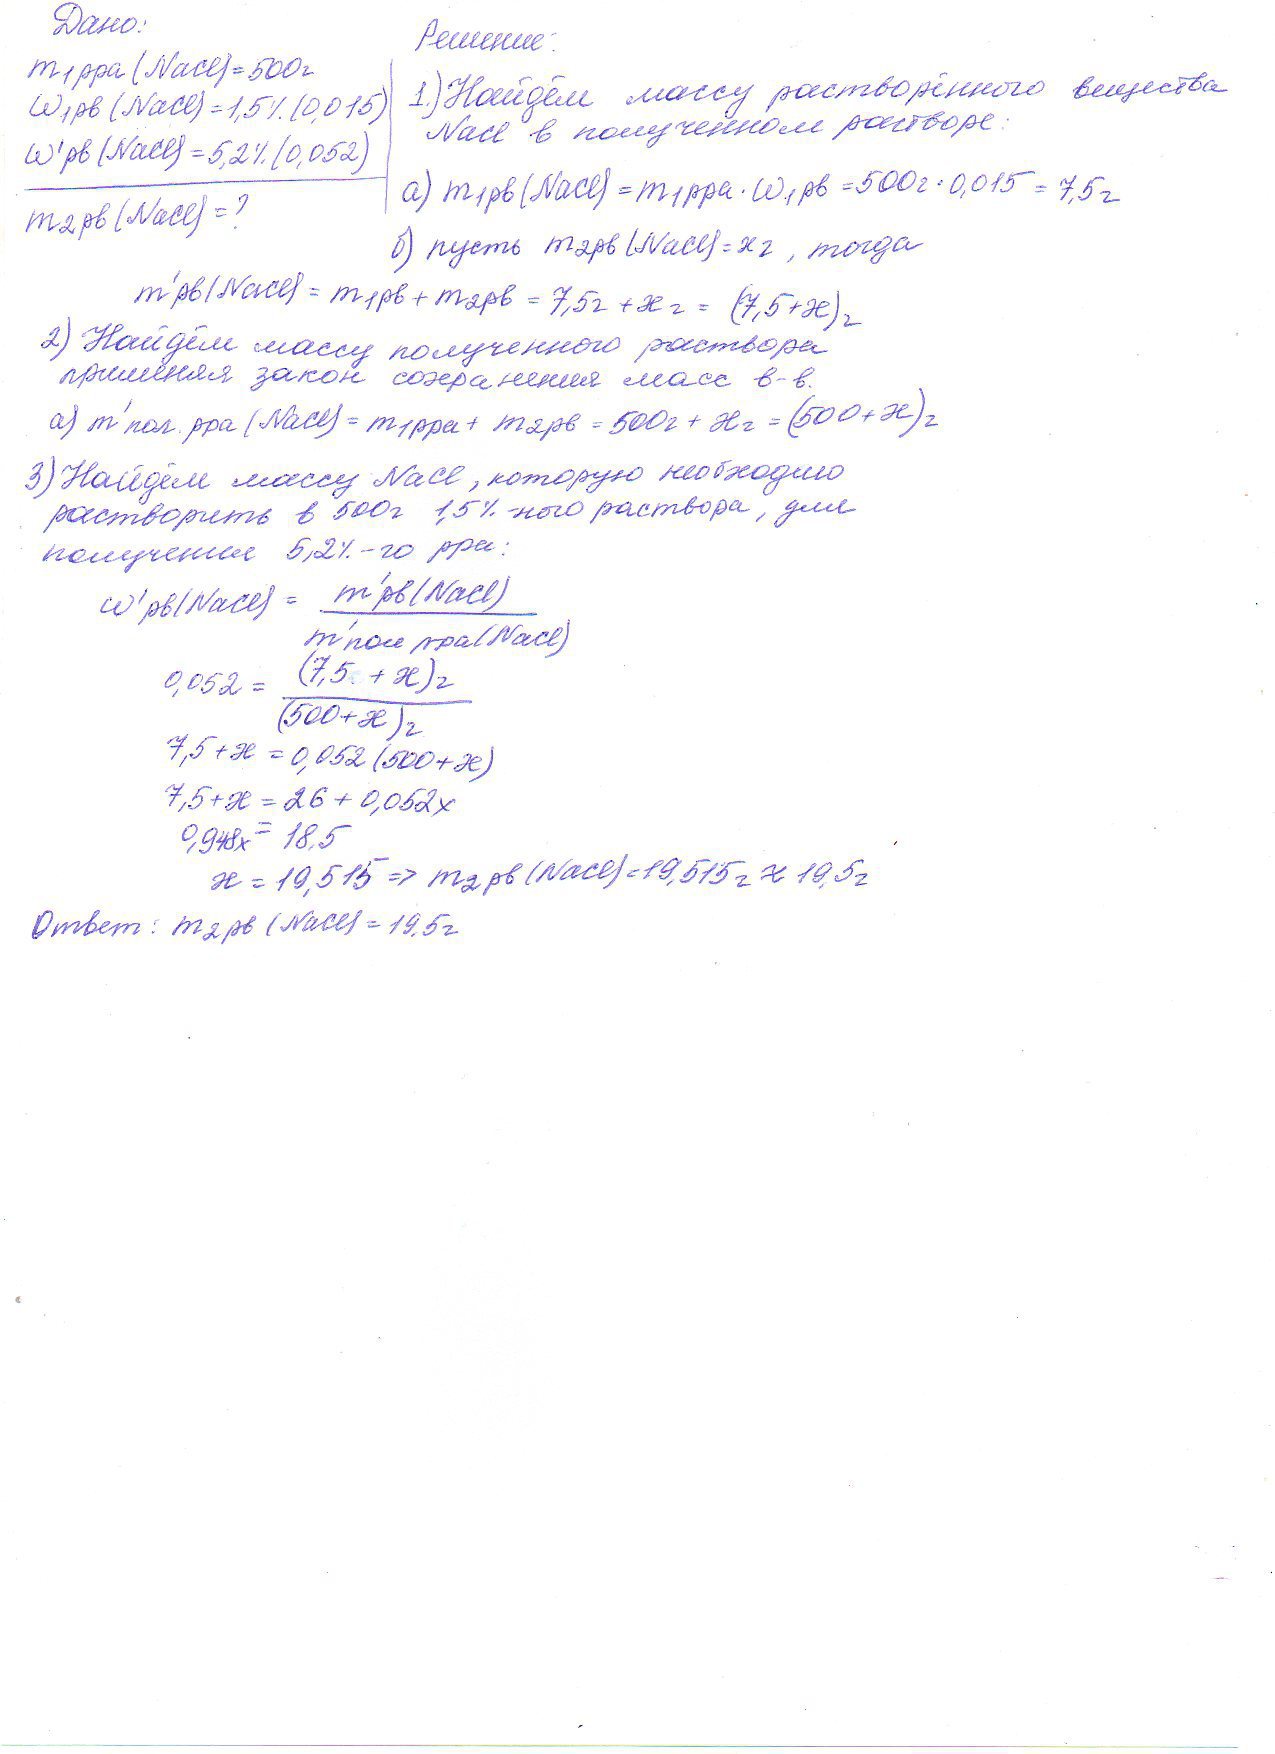 Дано:
m₁рра (NaCl)=500г
ω₁рв (NaCl)=1,5%(0,015)
ω'рв (NaCl)=5,2%(0,052)
m₂рв (NaCl)=?
Решение:
1.) Найдём массу растворённого вещества
NaCl в полученном растворе:
а) m₁рв (NaCl) = m₁рра · ω₁рв = 500г · 0,015 = 7,5г
б) пусть m₂рв (NaCl) = x г, тогда
m'рв (NaCl) = m₁рв + m₂рв = 7,5г + x г = (7,5+x)г
2) Найдём массу полученного раствора
применяя закон сохранения масс в-в.
а) m'пол. рра (NaCl) = m₁рра + m₂рв = 500г + x г = (500+x)г
3) Найдём массу NaCl, которую необходимо
растворить в 500г 1,5%-ного раствора, для
получения 5,2%-го рра:
ω'рв (NaCl) = m'рв (NaCl)
m'пол рра (NaCl)
0,052 = (7,5 + x)г
(500+x)г
7,5+x = 0,052 (500+x)
7,5+x = 26 + 0,052x
0,948x = 18,5
x = 19,515 => m₂рв (NaCl) = 19,515г ≈ 19,5г
Ответ: m₂рв (NaCl) = 19,5г